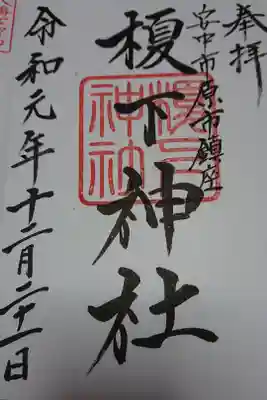 奉拝
安中市原市鎮座
榎下神社
令和元年十二月二十一日